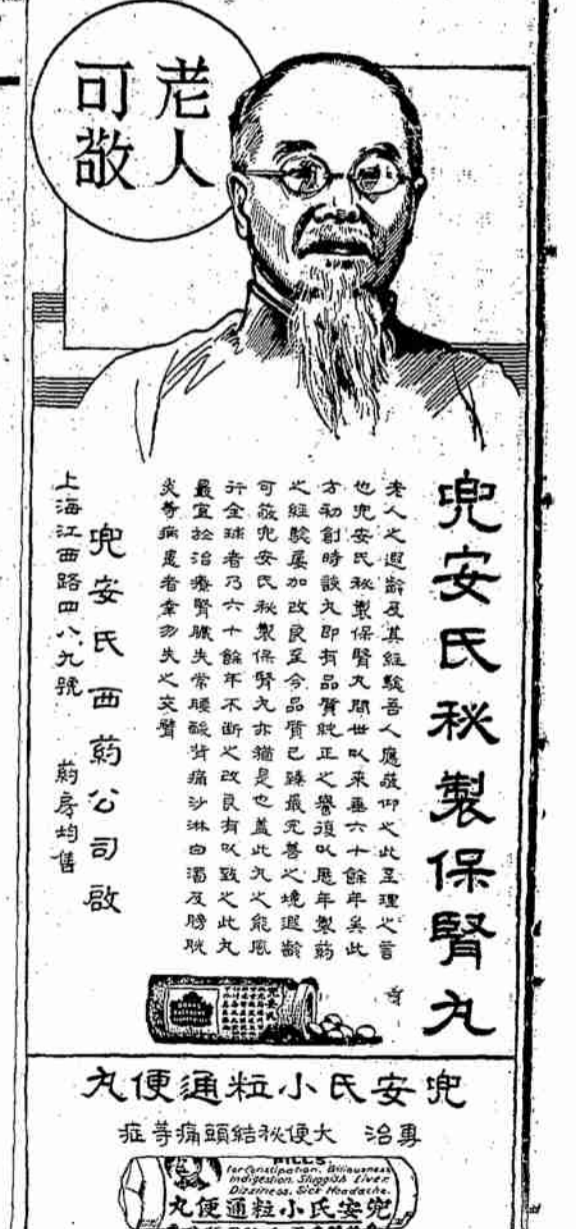 老人
可敬
兜安氏秘製保腎丸
老人之遐齡及其經驗吾人應敬仰之此至理之言
也兜安氏秘製保腎丸問世以來垂六十餘年矣此
方初創時該丸即有品質純正之譽復以歷年製葯
之經驗屢加改良至今品質已臻最完善之境遐齡
可敬兜安氏秘製保腎丸亦猶是也蓋此丸之能風
行全球者乃六十餘年不斷之改良有以致之此丸
最宜於治療腎臟失常腰酸背痛沙淋白濁及膀胱
炎等病患者幸勿失之交臂
兜安氏西葯公司啟
上海江西路四八九號 葯房均售
兜安氏小粒通便丸
專治 大便秘結頭痛等症
PILLS.
for Constipation. Biliousness
Indigestion. Sluggish Liver.
Dizziness. Sick Headache.
兜安氏小粒通便丸